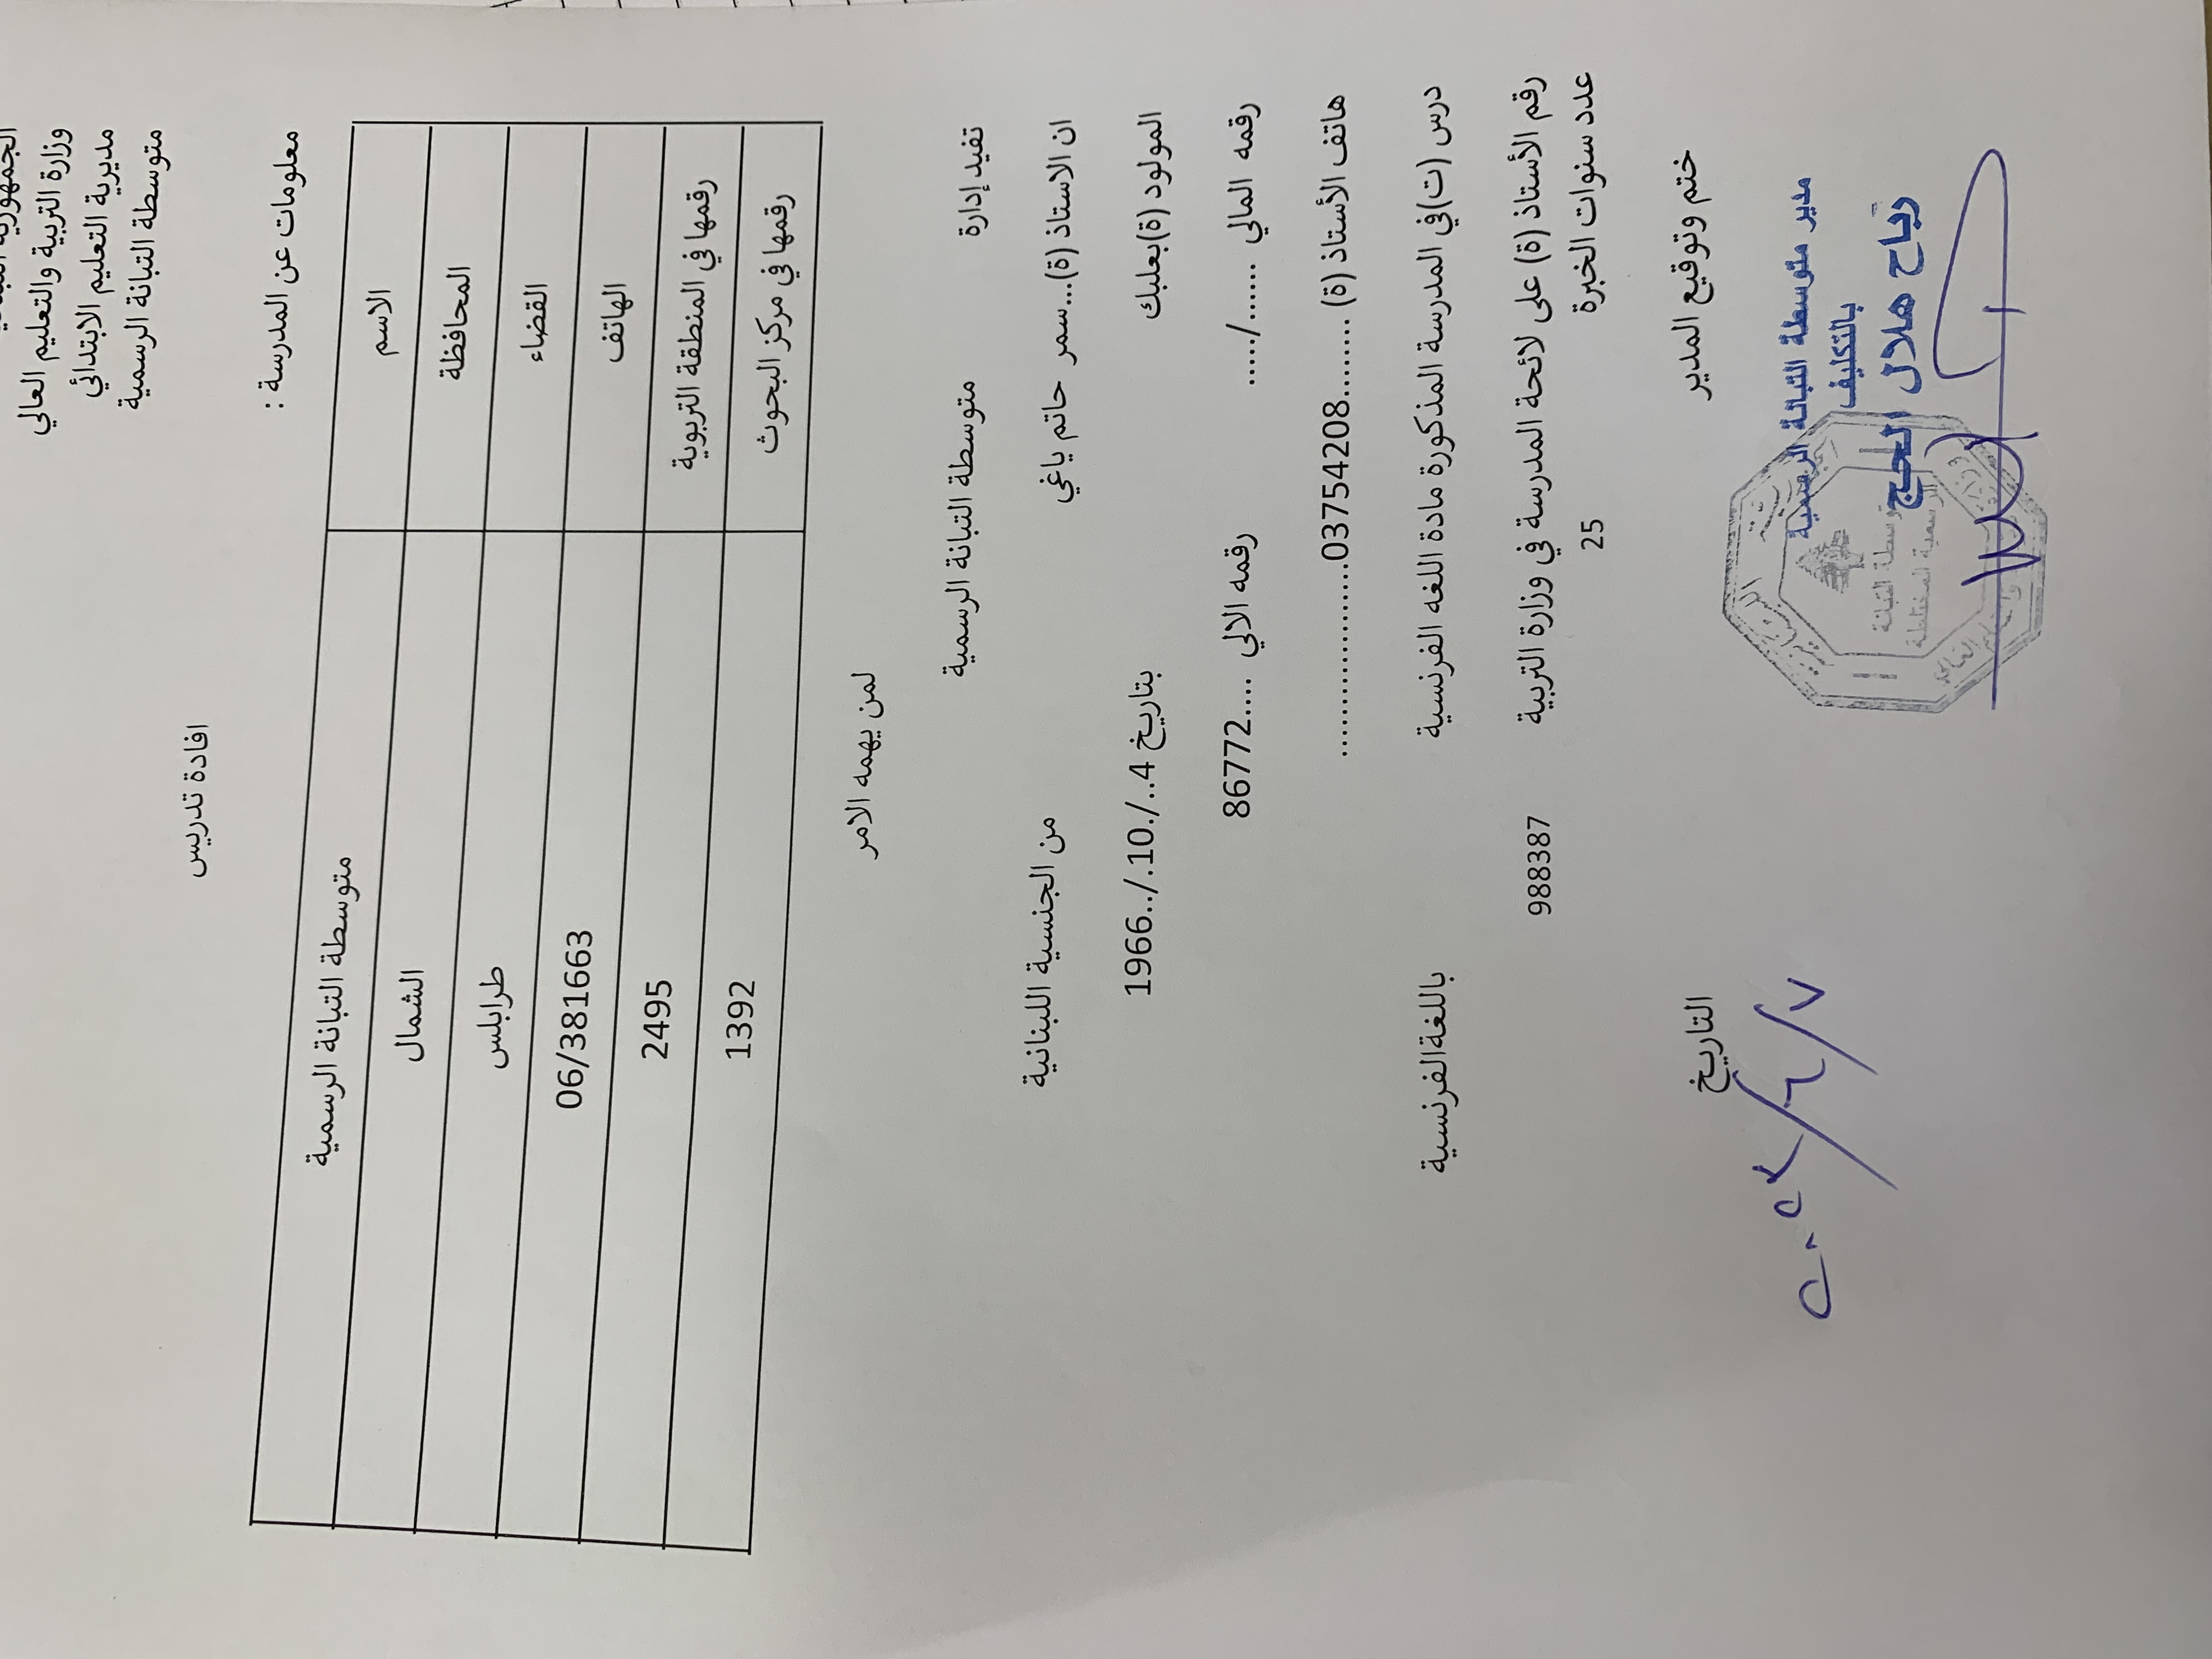 وزارة التربية والتعليم العالي
مديرية التعليم الابتدائي
متوسطة التبانة الرسمية
افادة تدريس
معلومات عن المدرسة :
الاسم متوسطة التبانة الرسمية
المحافظة الشمال
القضاء طرابلس
الهاتف 06/381663
رقمها في المنطقة التربوية 2495
رقمها في مركز البحوث 1392
لمن يهمه الامر
تفيد إدارة متوسطة التبانة الرسمية
ان الاستاذ (ة)...سمر حاتم ياغي من الجنسية اللبنانية
المولود (ة)بعلبك بتاريخ 4../.10./..1966
رقمه المالي ....../..... رقمه الالي ....86772
هاتف الأستاذ (ة) .........03754208......................
درس (ت)في المدرسة المذكورة مادة اللغه الفرنسية باللغةالفرنسية
رقم الأستاذ (ة) على لائحة المدرسة في وزارة التربية 988387
عدد سنوات الخبرة 25
ختم وتوقيع المدير التاريخ
مدير متوسطة التبانة الرسمية
بالتكليف
رباح هلال الحج
متوسطة التبانة
الرسمية المختلطة